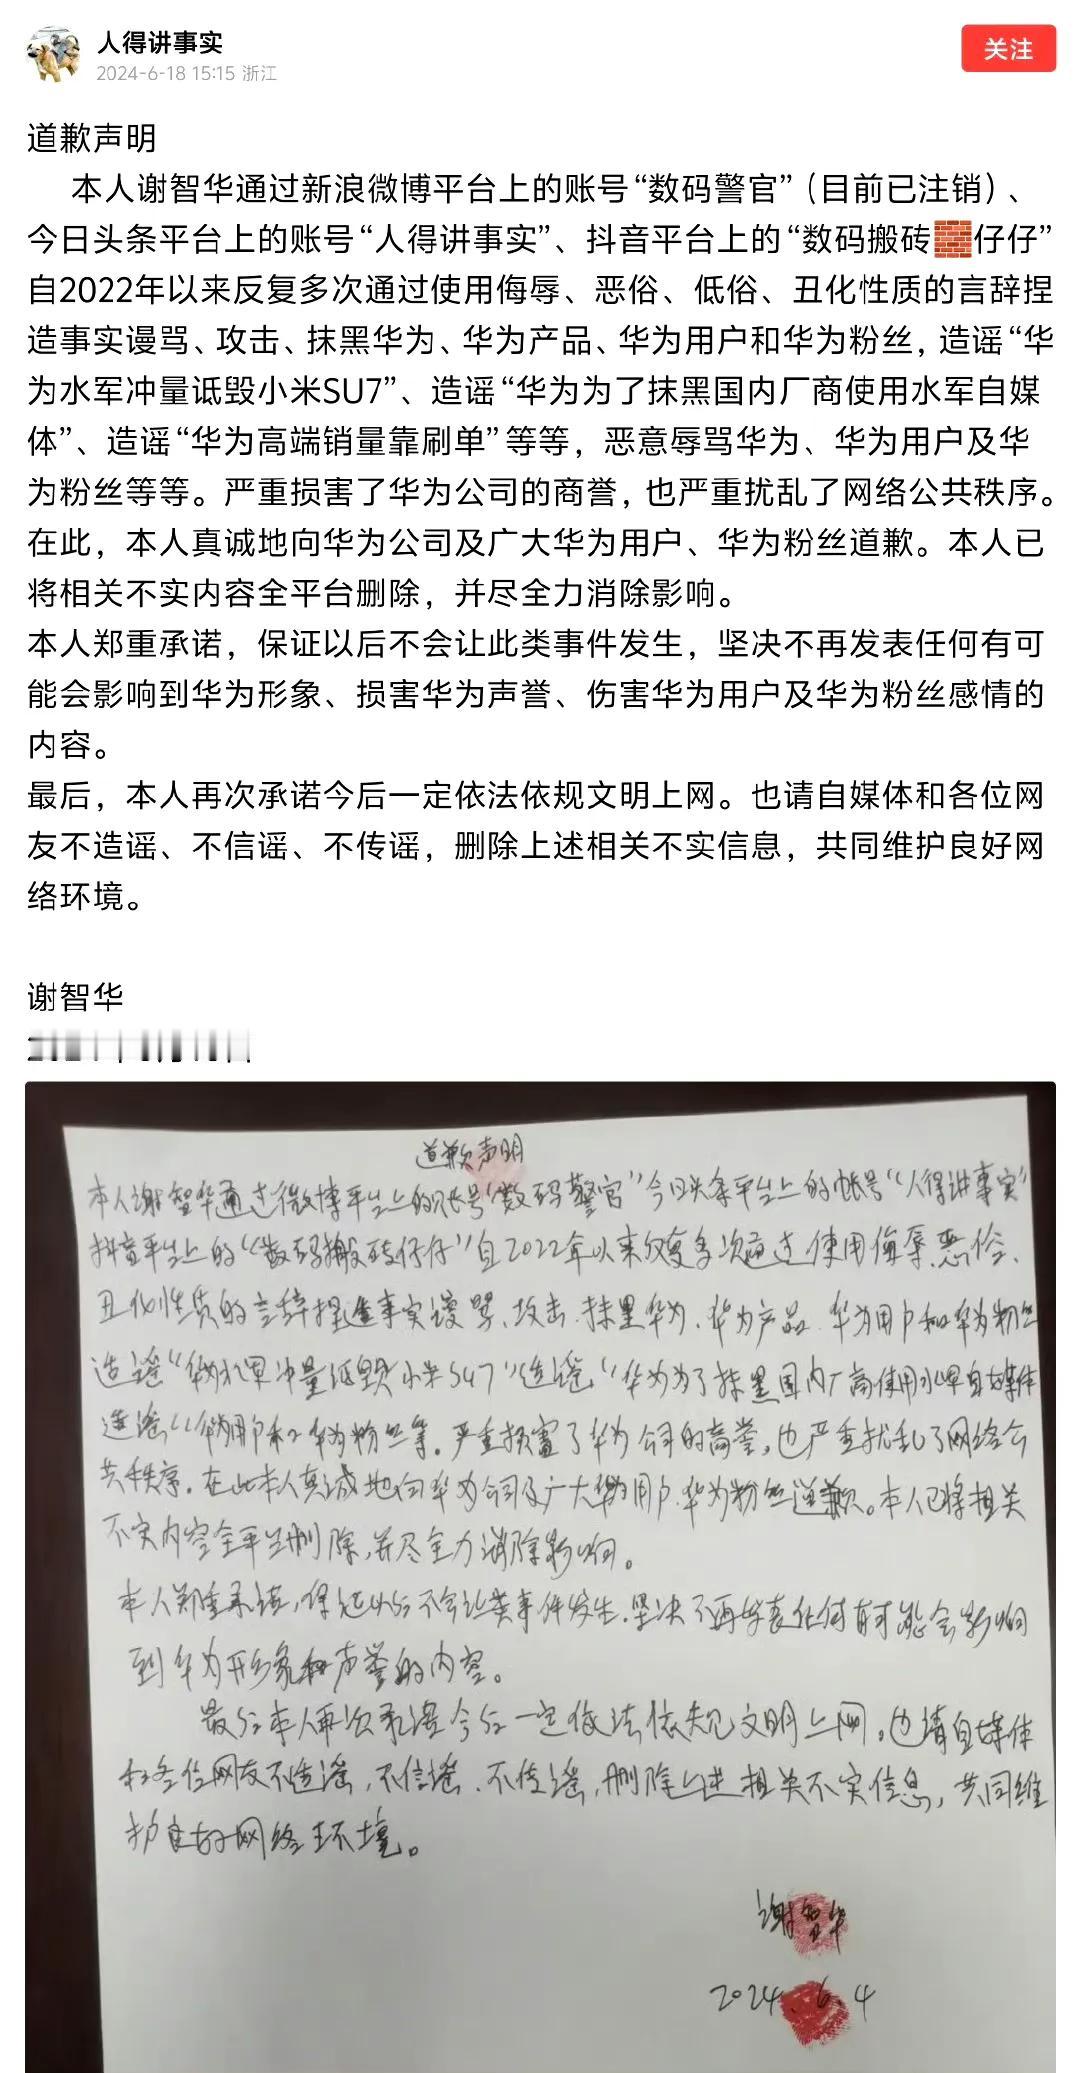 人得讲事实
2024-6-18 15:15 浙江
关注
道歉声明
本人谢智华通过新浪微博平台上的账号“数码警官”（目前已注销）、
今日头条平台上的账号“人得讲事实”、抖音平台上的“数码搬砖🧱仔仔”
自2022年以来反复多次通过使用侮辱、恶俗、低俗、丑化性质的言辞捏
造事实谩骂、攻击、抹黑华为、华为产品、华为用户和华为粉丝，造谣“华
为水军冲量诋毁小米SU7”、造谣“华为为了抹黑国内厂商使用水军自媒
体”、造谣“华为高端销量靠刷单”等等，恶意辱骂华为、华为用户及华
为粉丝等等。严重损害了华为公司的商誉，也严重扰乱了网络公共秩序。
在此，本人真诚地向华为公司及广大华为用户、华为粉丝道歉。本人已
将相关不实内容全平台删除，并尽全力消除影响。
本人郑重承诺，保证以后不会让此类事件发生，坚决不再发表任何有可
能会影响到华为形象、损害华为声誉、伤害华为用户及华为粉丝感情的
内容。
最后，本人再次承诺今后一定依法依规文明上网。也请自媒体和各位网
友不造谣、不信谣、不传谣，删除上述相关不实信息，共同维护良好网
络环境。
谢智华
道歉声明
本人谢智华通过微博平台上的账号“数码警官”今日头条平台上的帐号“人得讲事实”
抖音平台上的“数码搬砖仔仔”自2022年以来反复多次通过使用侮辱、恶俗、
丑化性质的言辞捏造事实谩骂、攻击、抹黑华为、华为产品、华为用户和华为粉丝
造谣“华为水军冲量诋毁小米SU7”造谣“华为为了抹黑国内厂商使用水军自媒体
造谣“华为用户和华为粉丝等。严重损害了华为公司的商誉，也严重扰乱了网络公
共秩序。在此本人真诚地向华为公司及广大华为用户、华为粉丝道歉。本人已将相关
不实内容全平台删除，并尽全力消除影响。
本人郑重承诺，保证以后不会让类事件发生，坚决不再发表任何有可能会影响
到华为形象和声誉的内容。
最后本人再次承诺今后一定依法依规文明上网。也请自媒体
和各位网友不造谣、不信谣、不传谣，删除上述相关不实信息，共同维
护良好网络环境。
谢智华
2024.6.4